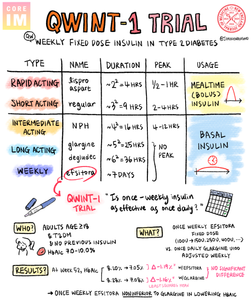 CORE IM
QWINT-1 TRIAL
QW
WEEKLY FIXED DOSE INSULIN IN TYPE 2 DIABETES
TYPE NAME DURATION PEAK USAGE
RAPID ACTING lispro aspart ~2² = 4 HRS 1/2-1 HR MEALTIME (BOLUS) INSULIN
SHORT ACTING regular ~3² = 9 HRS 2-4 HRS
INTERMEDIATE ACTING NPH ~4² = 16 HRS 4-12 HRS BASAL INSULIN
LONG ACTING glargine ~5² = 25 HRS NO PEAK
degludec ~6² = 36 HRS
WEEKLY efsitora ~7 DAYS
QWINT-1 TRIAL
"Is once-weekly insulin as effective as once daily?"
WHO?
ADULTS AGE ≥18
& T2DM
& NO PREVIOUS INSULIN
& HbA1c 7.0-10.0%
WHAT?
ONCE WEEKLY EFSITORA
FIXED DOSE
VS. ONCE DAILY GLARGINE
ADJUSTED WEEKLY
RESULTS?
AT WEEK 52, HbA1c
NO SIGNIFICANT DIFFERENCE
→ ONCE WEEKLY EFSITORA NONINFERIOR TO GLARGINE IN LOWERING HbA1C